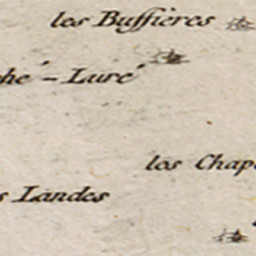 les Buffières
ché-Luré
les Chap
s Landes